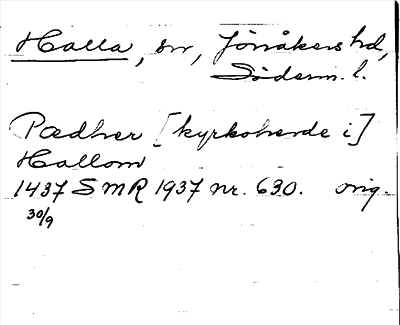 Halla, sn, Jönåkers hd,
Söderm. l.
Pædher [kyrkoherde i]
Hallom
1437 SMR 1937 nr. 630. orig.
30/9